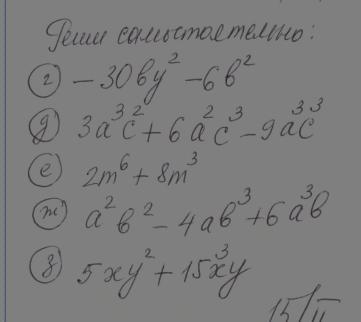 Реши самостоятельно:
г) −30by² − 6b²
д) 3a³c² + 6a²c³ − 9a³c³
е) 2m⁶ + 8m³
ж) a²b² − 4ab³ + 6a³b
з) 5xy² + 15x³y
15/II